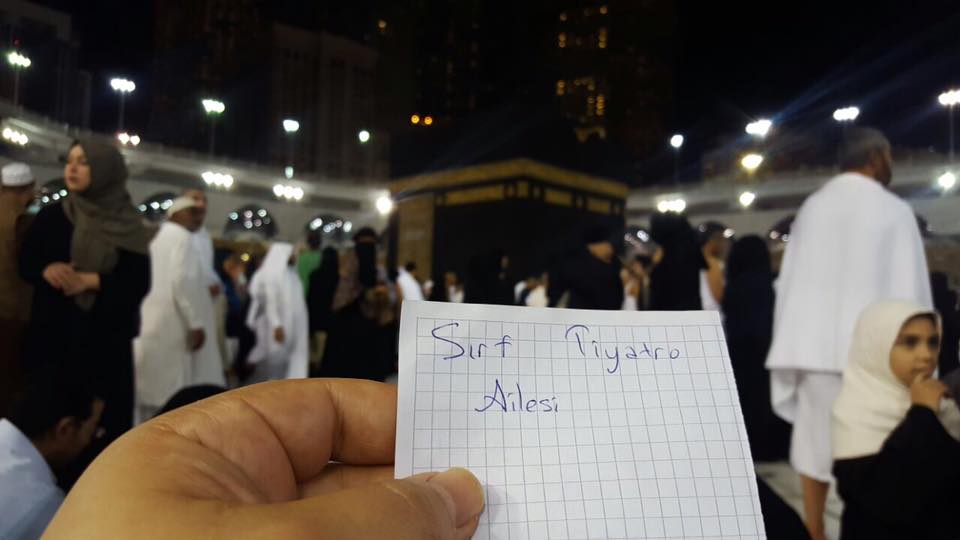 Sırf Tiyatro
Ailesi